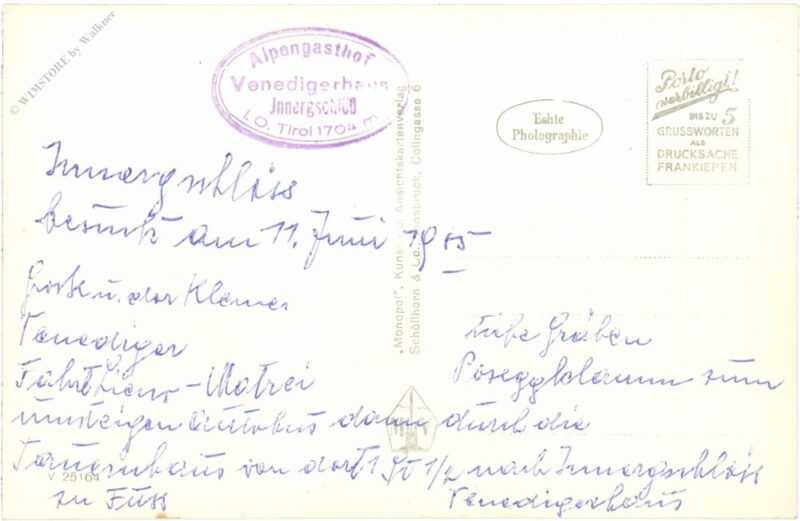 © WIMSTORE by Walkner
Alpengasthof
Venedigerhaus
Innergschlöß
i. O. Tirol 1704 m
Echte
Photographie
Porto
verbilligt!
BIS ZU 5
GRUSSWORTEN
ALS
DRUCKSACHE
FRANKIEREN
„Monopol", Kunst- u. Ansichtskartenverlag
Schöllhorn & Co., Innsbruck, Colingasse 6
Innergschlöss
besucht am 11. Juni 19
u. der Kleine
Venediger
Fahrt Lienz - Matrei
umsteigen Autobus dann durch die
tiefe Gräben
Poseggklamm zum
Tauernhaus von dort 1 St 1/2 nach Innergschlöss
zu Fuss
Venedigerhaus
V 25164